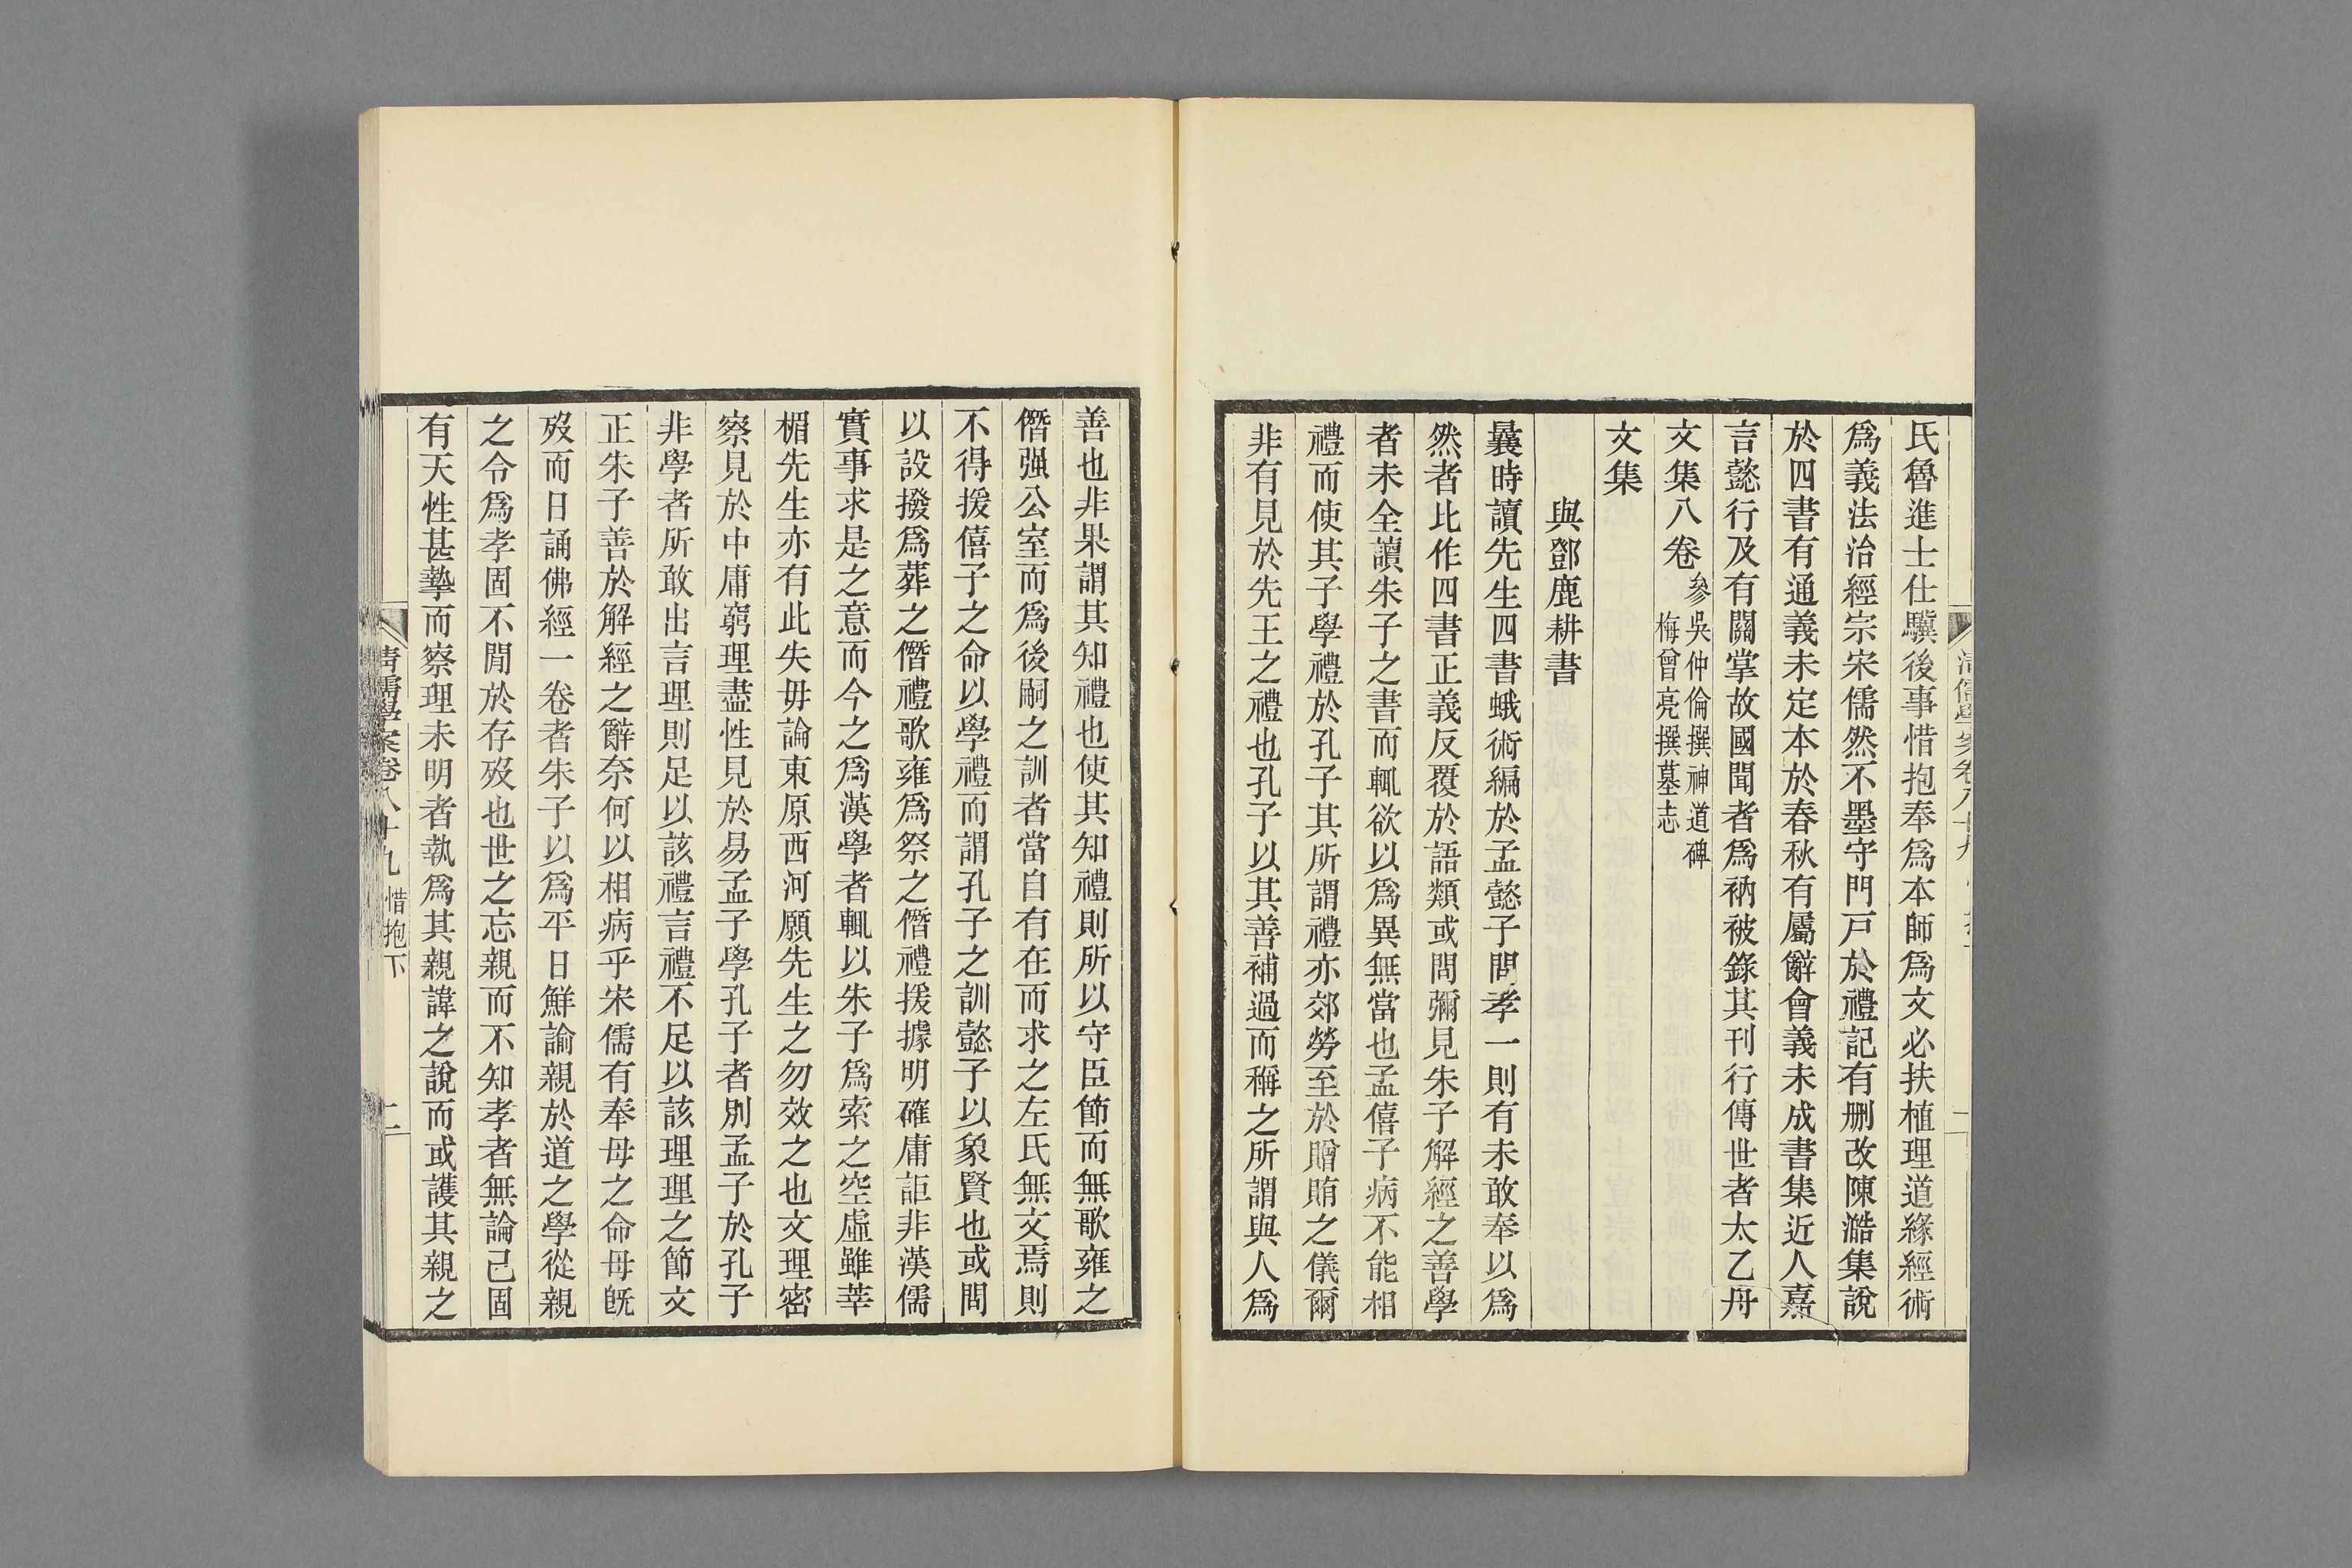 氏魯進士仕驥後事惜抱奉爲本師爲文必扶植理道緣經術
爲義法治經宗宋儒然不墨守門戸於禮記有刪改陳澔集說
於四書有通義未定本於春秋有屬辭會義未成書集近人嘉
言懿行及有關掌故國聞者爲衲被錄其刊行傳世者太乙舟
文集八卷參吳仲倫撰神道碑
梅曾亮撰墓志
文集
與鄧鹿耕書
曩時讀先生四書蛾術編於孟懿子問孝一則有未敢奉以爲
然者比作四書正義反覆於語類或問彌見朱子解經之善學
者未全讀朱子之書而輒欲以爲異無當也孟僖子病不能相
禮而使其子學禮於孔子其所謂禮亦郊勞至於贈賄之儀爾
非有見於先王之禮也孔子以其善補過而稱之所謂與人爲
善也非果謂其知禮也使其知禮則所以守臣節而無歌雍之
僭强公室而爲後嗣之訓者當自有在而求之左氏無文焉則
不得援僖子之命以學禮而謂孔子之訓懿子以象賢也或問
以設撥爲葬之僭禮歌雍爲祭之僭禮援據明確庸詎非漢儒
實事求是之意而今之爲漢學者輒以朱子爲索之空虛雖莘
楣先生亦有此失毋論東原西河願先生之勿效之也文理密
察見於中庸窮理盡性見於易孟子學孔子者別孟子於孔子
非學者所敢出言理則足以該禮言禮不足以該理理之節文
正朱子善於解經之辭奈何以相病乎宋儒有奉母之命母旣
歿而日誦佛經一卷者朱子以爲平日鮮諭親於道之學從親
之令爲孝固不閒於存歿也世之忘親而不知孝者無論己固
有天性甚摯而察理未明者執爲其親諱之說而或護其親之
清儒學案卷八十九 惜抱下
二